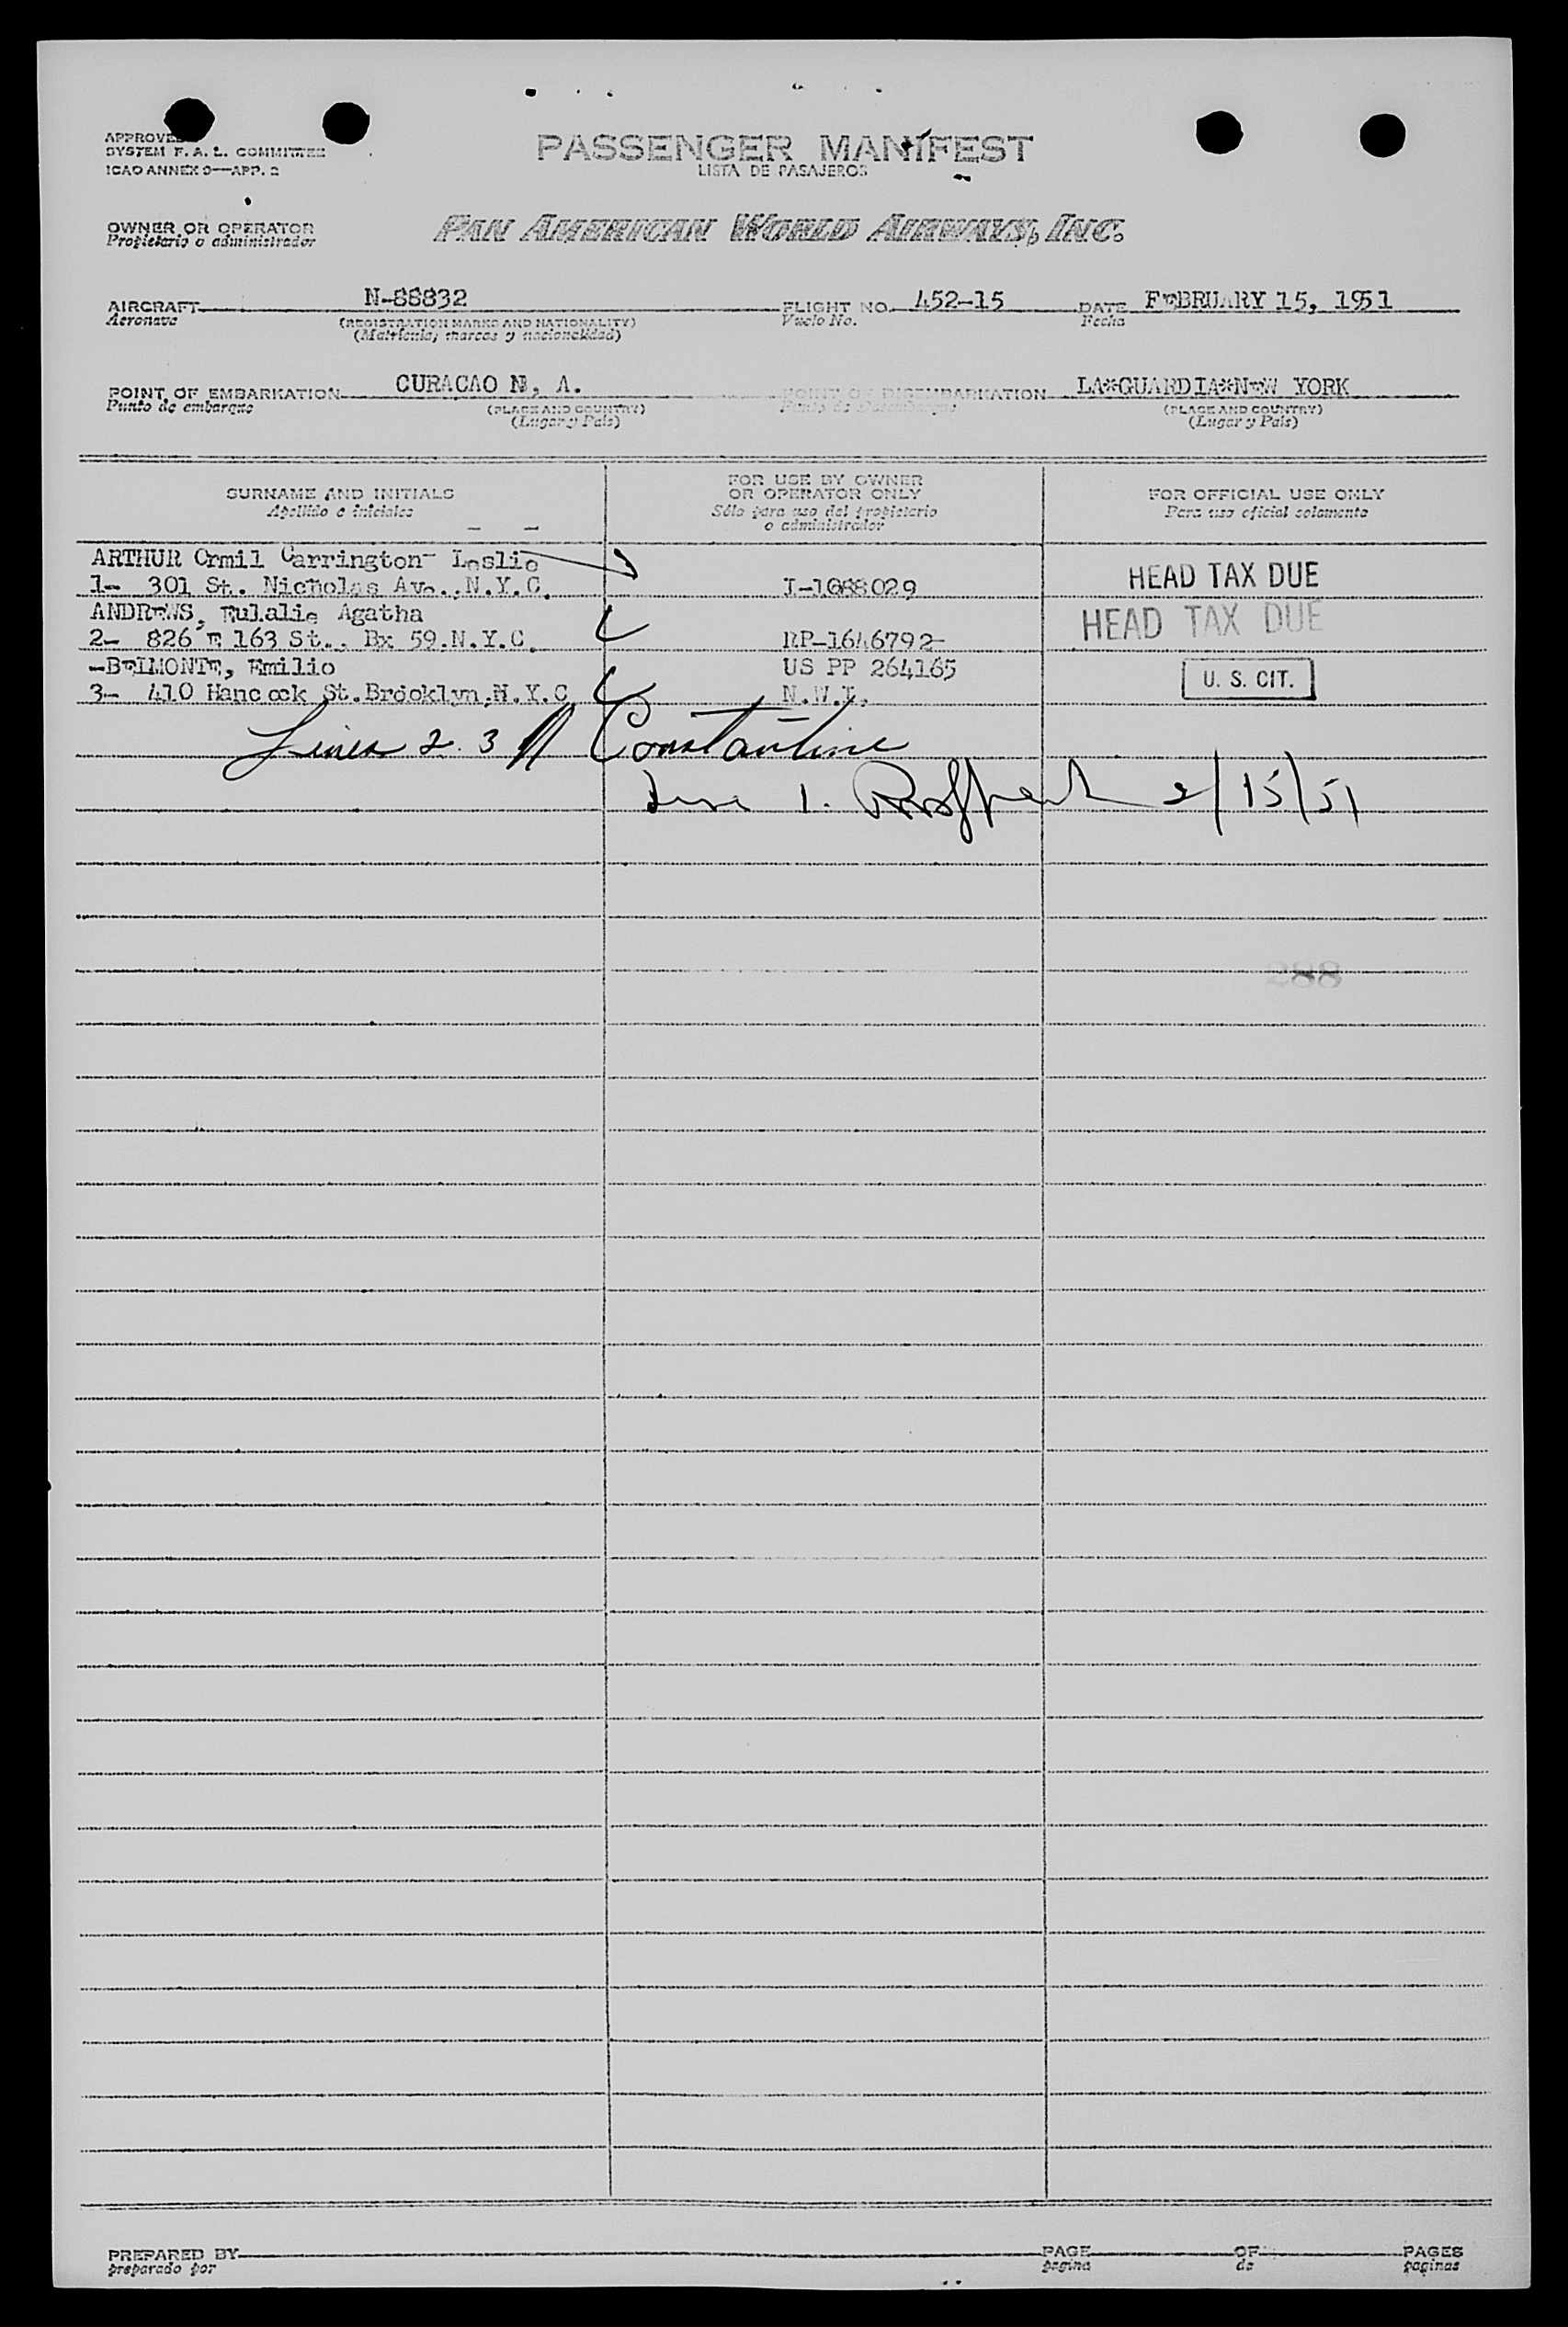 APPROVED
SYSTEM F. A. L. COMMITTEE
ICAO ANNEX 9—APP. 2
PASSENGER MANIFEST
LISTA DE PASAJEROS
OWNER OR OPERATOR
Propietario o administrador
PAN AMERICAN WORLD AIRWAYS, INC.
AIRCRAFT N-88832 FLIGHT NO. 452-15 DATE FEBRUARY 15, 1951
Aeronave (REGISTRATION MARKS AND NATIONALITY) Vuelo No. Fecha
(Matrícula, marcas y nacionalidad)
POINT OF EMBARKATION CURACAO N, A. POINT OF DISEMBARKATION LA*GUARDIA*NEW YORK
Punto de embarque (PLACE AND COUNTRY) Punto de desembarque (PLACE AND COUNTRY)
(Lugar y País) (Lugar y País)
SURNAME AND INITIALS
Apellido e iniciales
FOR USE BY OWNER
OR OPERATOR ONLY
Sólo para uso del propietario
o administrador
FOR OFFICIAL USE ONLY
Para uso oficial solamente
ARTHUR Ormil Carrington- Leslie
1- 301 St. Nicholas Ave.,N.Y.C. I-1088029 HEAD TAX DUE
ANDREWS, Eulalie Agatha
2- 826 E 163 St., Bx 59.N.Y.C. RP-1646792 HEAD TAX DUE
-BELMONTE, Emilio US PP 264165
3- 410 Hancock St.Brooklyn,N.Y.C N.W.I. U. S. CIT.
Lines 2. 3 N Constantine
Line 1. 2/15/51
288
PREPARED BY PAGE OF PAGES
preparado por pagina de paginas